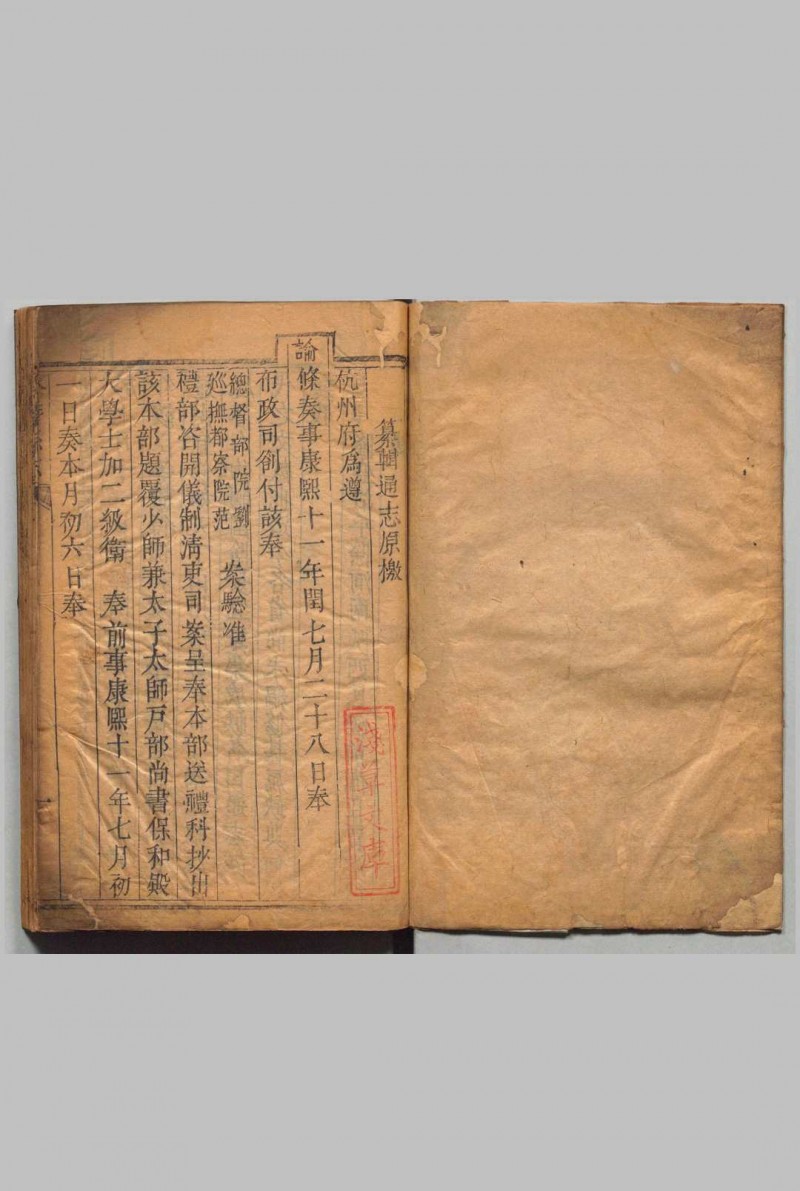 纂輯通志原檄
杭州府爲遵
諭條奏事康熙十一年閏七月二十八日奉
布政司劄付該奉
總督部院劉
巡撫都察院范
案驗准
禮部咨開儀制清吏司案呈奉本部送禮科抄出
該本部題覆少師兼太子太師戸部尚書保和殿
大學士加二級衛 奉前事康熙十一年七月初
一日奏本月初六日奉
淺草文庫